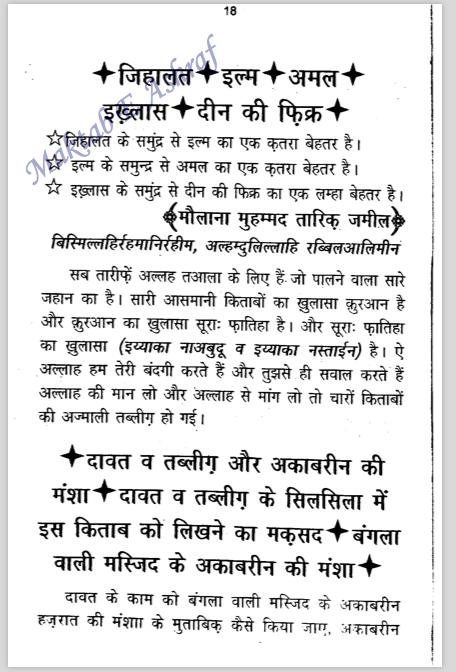 18
✦जिहालत✦इल्म✦अमल✦
इख़्लास✦दीन की फ़िक्र✦
☆जिहालत के समुंद्र से इल्म का एक क़तरा बेहतर है।
☆ इल्म के समुन्द्र से अमल का एक क़तरा बेहतर है।
☆ इख़्लास के समुंद्र से दीन की फ़िक्र का एक लम्हा बेहतर है।
मौलाना मुहम्मद तारिक़ जमील
बिस्मिल्लहिर्रहमानिर्रहीम, अल्हम्दुलिल्लाहि रब्बिलआलिमीन
सब तारीफ़ें अल्लह तआला के लिए हैं जो पालने वाला सारे
जहान का है। सारी आसमानी किताबों का ख़ुलासा क़ुरआन है
और क़ुरआन का ख़ुलासा सूराः फ़ातिहा है। और सूराः फ़ातिहा
का ख़ुलासा (इय्याका नाअबुदू व इय्याका नस्ताईन) है। ऐ
अल्लाह हम तेरी बंदगी करते हैं और तुझसे ही सवाल करते हैं
अल्लाह की मान लो और अल्लाह से मांग लो तो चारों किताबों
की अज्माली तब्लीग़ हो गई।
✦दावत व तब्लीग़ और अकाबरीन की
मंशा✦दावत व तब्लीग़ के सिलसिला में
इस किताब को लिखने का मक़सद✦बंगला
वाली मस्जिद के अकाबरीन की मंशा✦
दावत के काम को बंगला वाली मस्जिद के अकाबरीन
हज़रात की मंशाा के मुताबिक़ कैसे किया जाए, अकाबरीन
Maktab E Ashraf